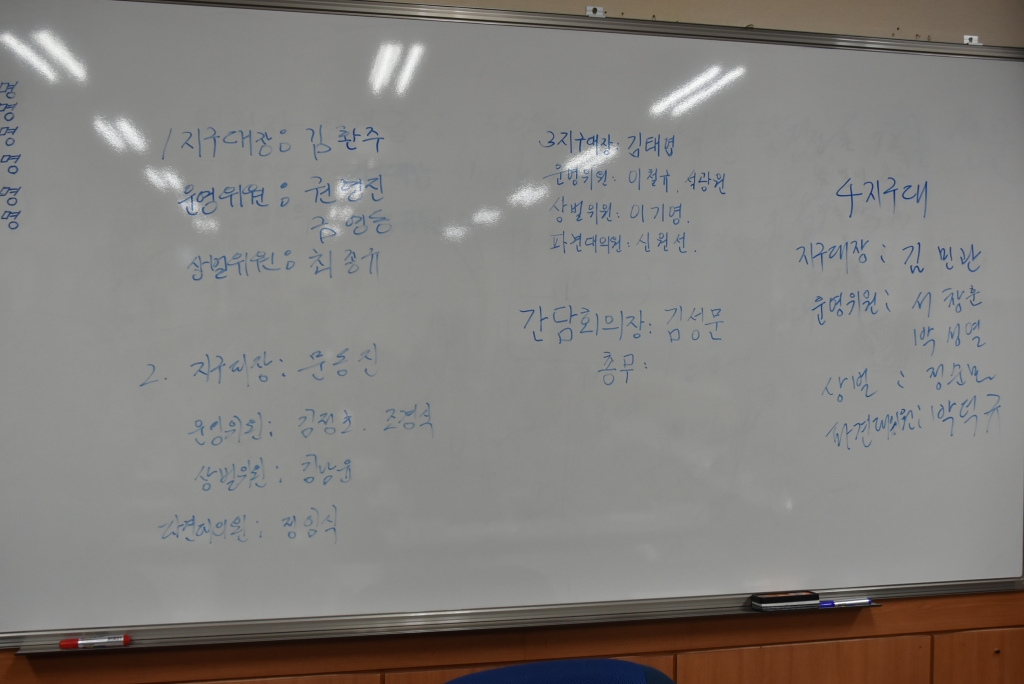 명
명
명
명
명
명
1지구대장: 김환주
운영위원: 권영진
김영동
상벌위원: 최종규
2. 지구대장: 문동진
운영위원: 김정호. 조경식
상벌위원: 김남윤
파견대의원: 정임식
3지구대장: 김태협
운영위원: 이철규. 석광원
상벌위원: 이기영.
파견대의원: 신원선.
간담회의장: 김성문
총무:
4지구대
지구대장: 김민관
운영위원: 서창훈
박성열
상벌: 정순모
파견대의원: 박덕규